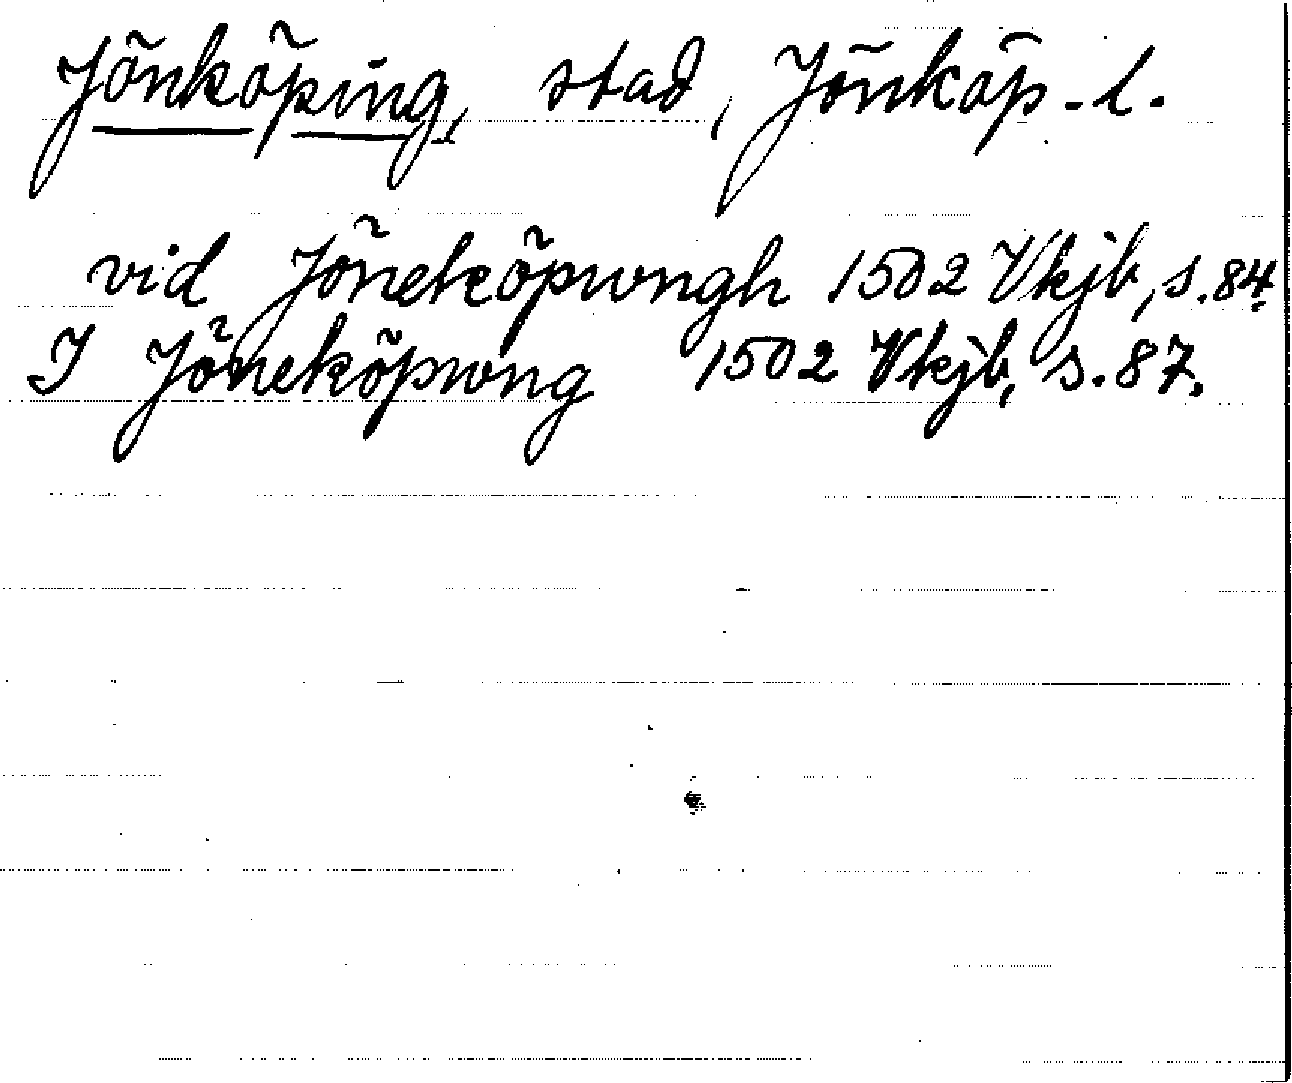 Jönköping, stad, Jönköp. l.
vid Jöneköpwngh 1502 Vkjb, s. 84.
I Jöneköpwng 1502 Vkjb, s. 87.